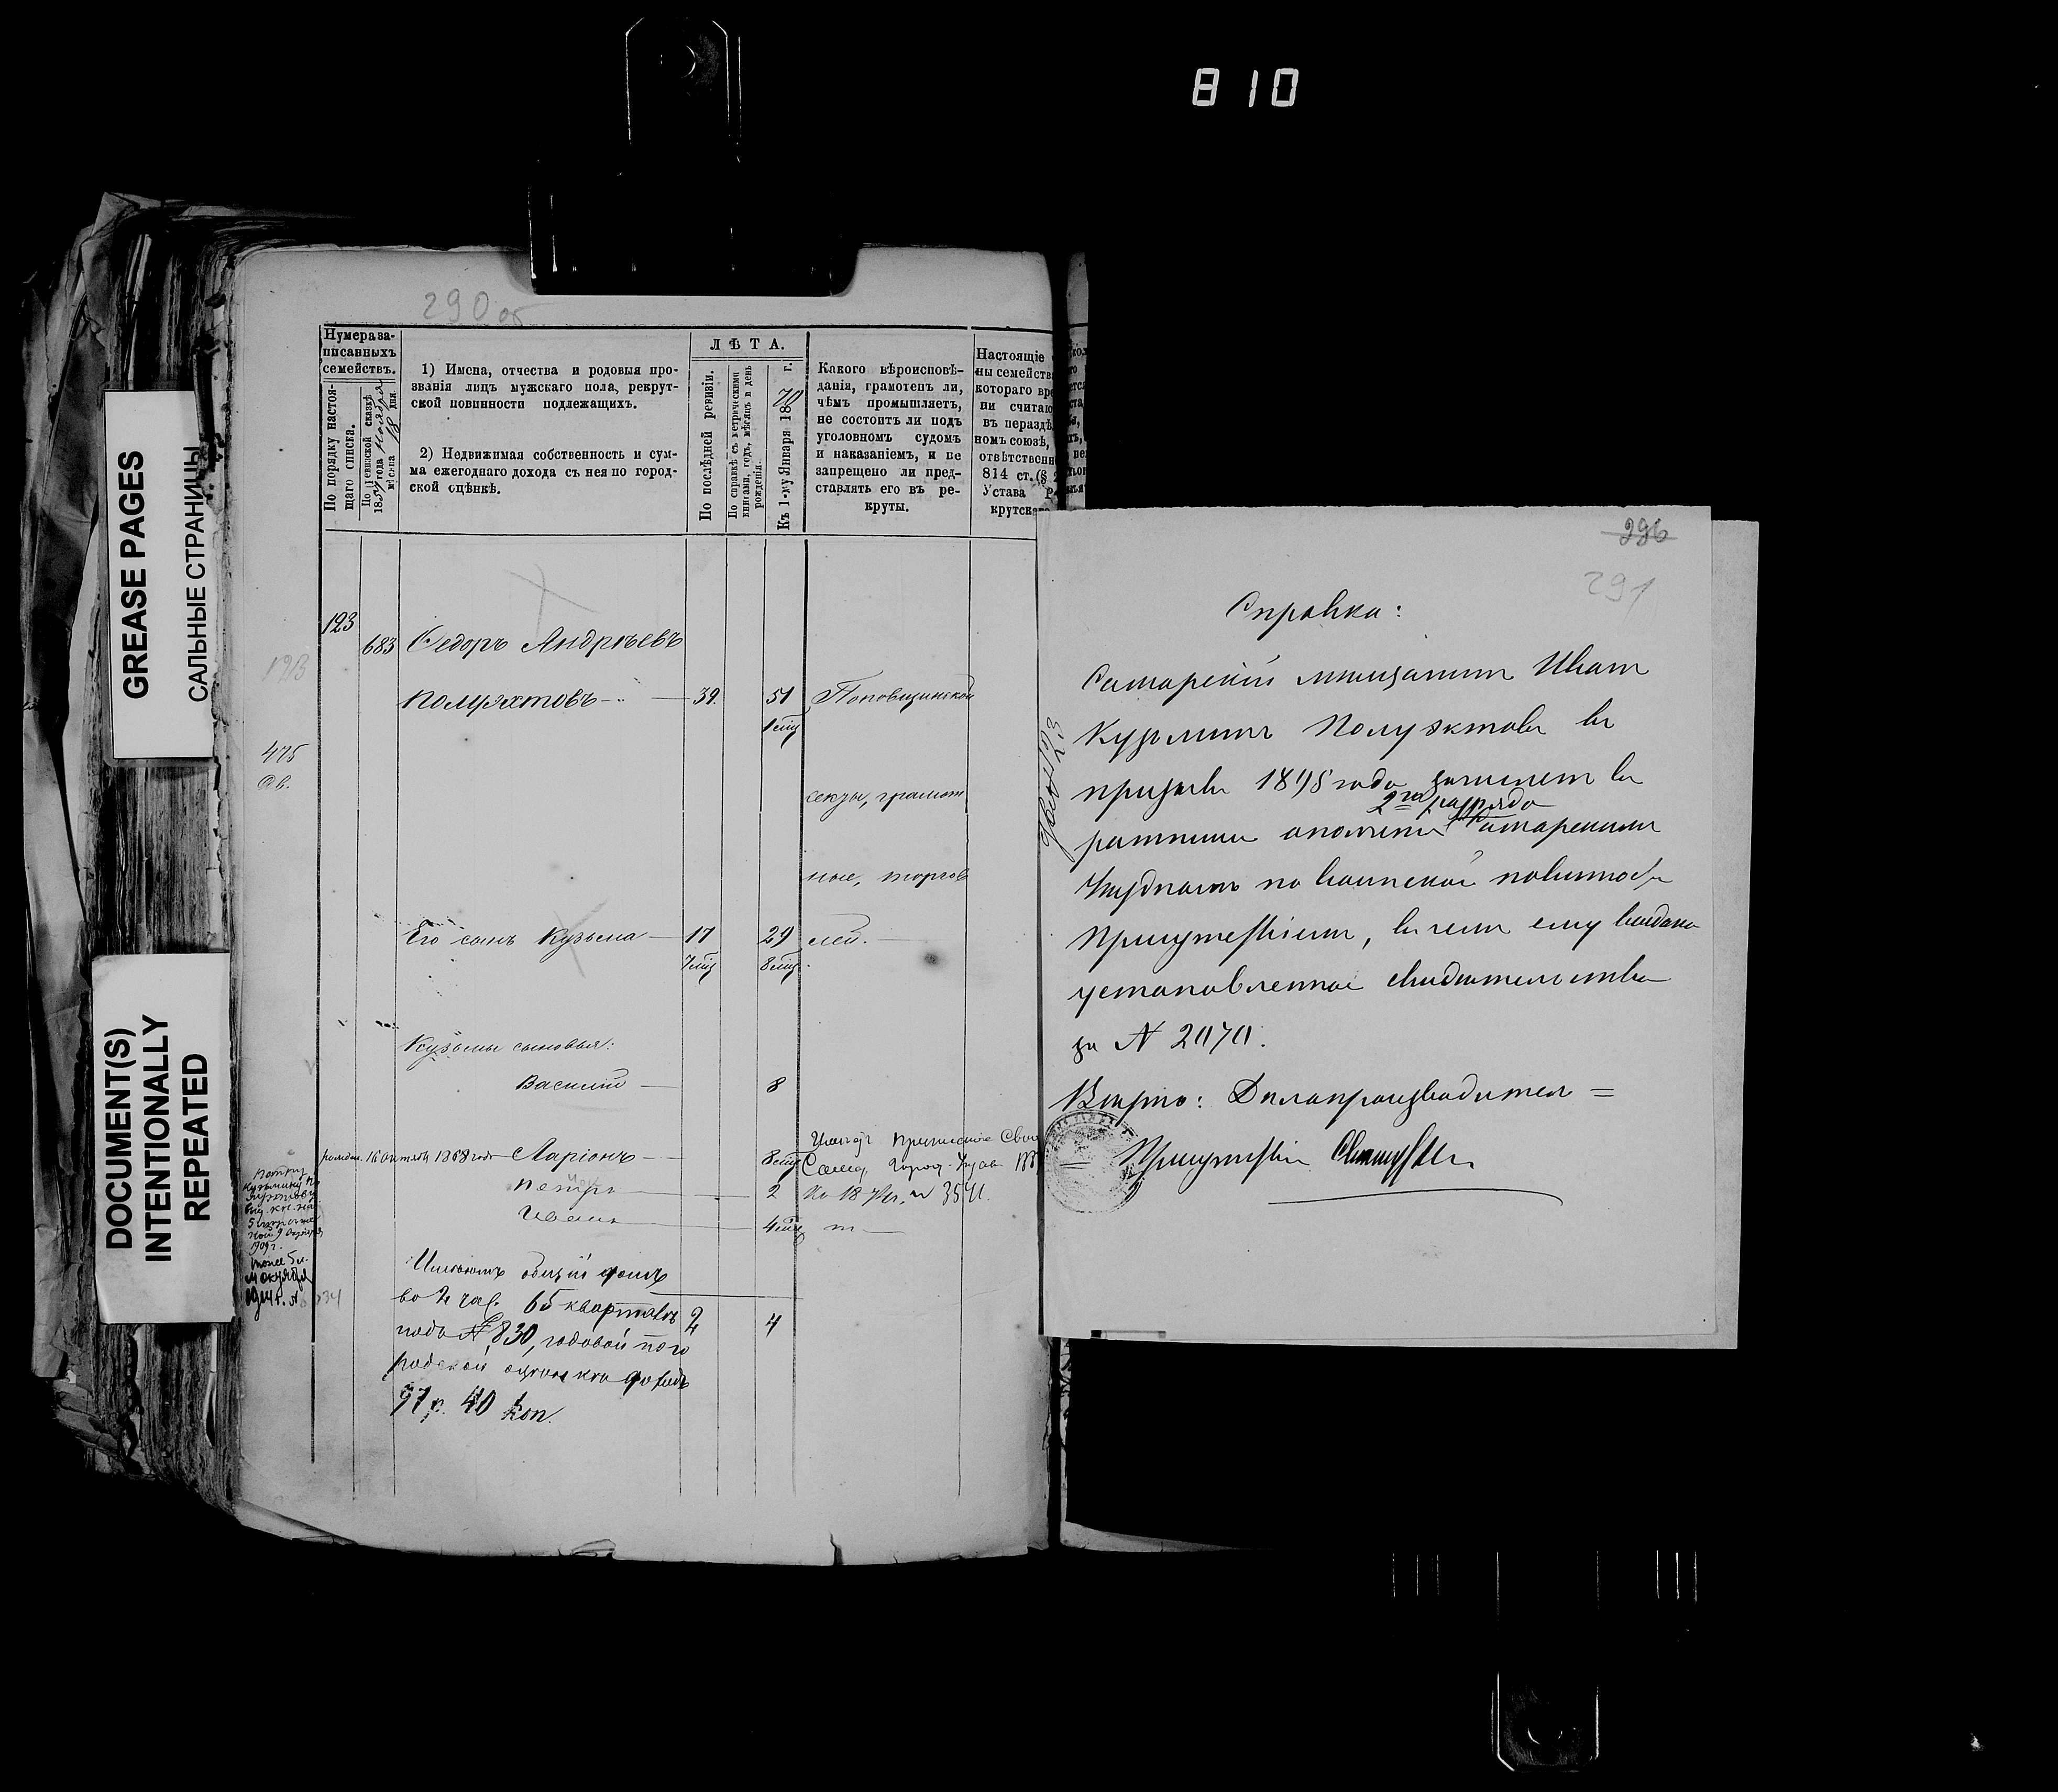 810
GREASE PAGES
САЛЬНЫЕ СТРАНИЦЫ
DOCUMENT(S)
INTENTIONALLY
REPEATED
290 об
Нумера за-
писанныхъ
семействъ.
По порядку настоя-
щаго списка.
По ревизской сказкѣ
18 года Ноября
мѣсяца 18 дня.
1) Имена, отчества и родовыя про-
званія лицъ мужскаго пола, рекрут-
ской повинности подлежащихъ.
2) Недвижимая собственность и сум-
ма ежегоднаго дохода съ нея по город-
ской оцѣнкѣ.
ЛѢТА.
По послѣдней ревизіи.
По справкѣ съ метрическими
книгами, годъ, мѣсяцъ и день
рожденія.
Къ 1-му Января 1870 г.
Какого вѣроисповѣ-
данія, грамотенъ ли,
чѣмъ промышляетъ,
не состоитъ ли подъ
уголовномъ судомъ
и наказаніемъ, и не
запрещено ли пред-
ставлять его въ ре-
круты.
Настоящіе
ны семейств
котораго вре
ни считаю
въ нераздѣ
номъ союзѣ,
отвѣтственн
814 ст. (§ 2
Устава Р
крутска
123
683 Федоръ Андрѣевъ
Полуэктовъ 39. 51 Поповщинской
1 мц
193
475
секты, грамот
ные, торгов
Его сынъ Кузьма 17 29 лей.
7 мц 8 мц
Кузьмы сыновья:
Василий 8
16 октября 1868 года Ларіонъ 8 мц
Петръ 2
Иванъ 4 мц
Имѣютъ общій домъ
во 2 час. 65 кварталѣ 2 4
подъ № 830, годовой по го
родской оцѣнкѣ доходъ
97 р. 40 коп.
296
291
Справка:
Самарскій мѣщанинъ Иванъ
Кузьминъ Полуэктовъ въ
призывъ 1895 года зачисленъ въ
2го разряда
ратники ополченія Самарскимъ
Уѣзднымъ по воинской повинности
Присутствіемъ, въ чемъ ему выдано
установленное свидѣтельство
за № 2070.
Вѣрно: Дѣлопроизводитель =
= Присутствія